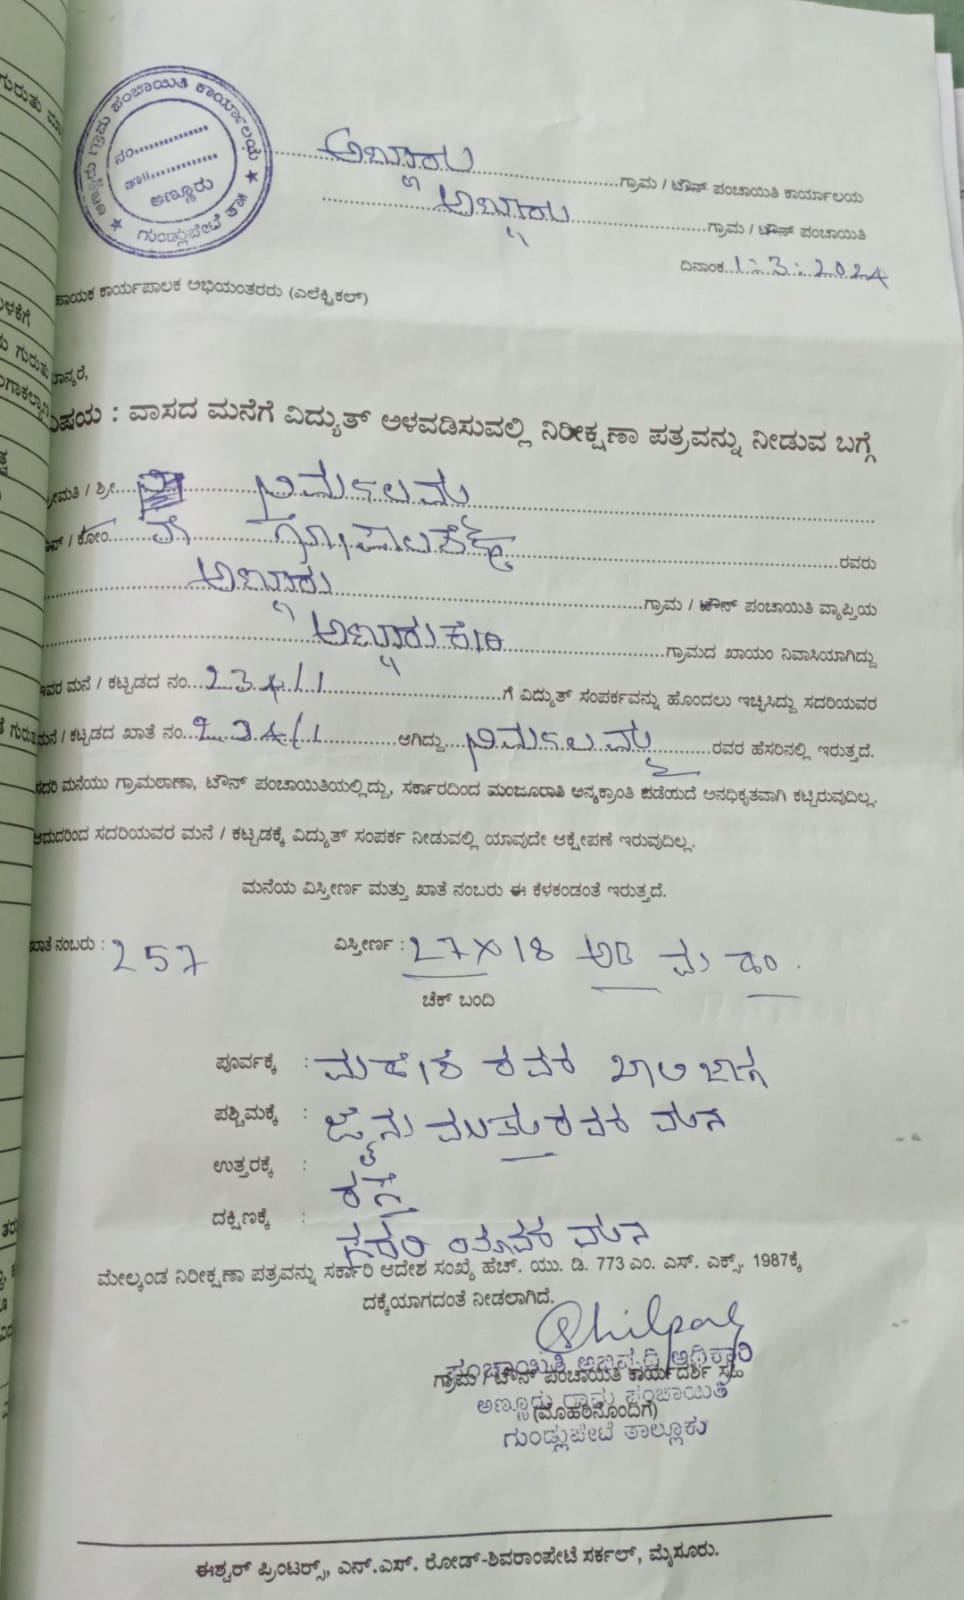 ಅಣ್ಣೂರು ಗ್ರಾಮ ಪಂಚಾಯಿತಿ ಕಾರ್ಯಾಲಯ
ನಂ..............
ತಾ||..............
ಅಣ್ಣೂರು
ಗುಂಡ್ಲುಪೇಟೆ ತಾ||
ಅಣ್ಣೂರು ಗ್ರಾಮ / ಟೌನ್ ಪಂಚಾಯಿತಿ ಕಾರ್ಯಾಲಯ
ಅಣ್ಣೂರು ಗ್ರಾಮ / ಟೌನ್ ಪಂಚಾಯಿತಿ
ದಿನಾಂಕ 1-3-2024
ಕಾರ್ಯಪಾಲಕ ಅಭಿಯಂತರರು (ಎಲೆಕ್ಟ್ರಿಕಲ್)
ಮಾನ್ಯರೆ,
ವಿಷಯ : ವಾಸದ ಮನೆಗೆ ವಿದ್ಯುತ್ ಅಳವಡಿಸುವಲ್ಲಿ ನಿರೀಕ್ಷಣಾ ಪತ್ರವನ್ನು ನೀಡುವ ಬಗ್ಗೆ
ಶ್ರೀಮತಿ / ಶ್ರೀ
ಬಿನ್ / ಕೋಂ ರವರು
ಅಣ್ಣೂರು ಗ್ರಾಮ / ಟೌನ್ ಪಂಚಾಯಿತಿ ವ್ಯಾಪ್ತಿಯ
ಅಣ್ಣೂರುಕೇರಿ ಗ್ರಾಮದ ಖಾಯಂ ನಿವಾಸಿಯಾಗಿದ್ದು
ಇವರ ಮನೆ / ಕಟ್ಟಡದ ನಂ. 234/1 ಗೆ ವಿದ್ಯುತ್ ಸಂಪರ್ಕವನ್ನು ಹೊಂದಲು ಇಚ್ಛಿಸಿದ್ದು ಸದರಿಯವರ
ಮನೆ / ಕಟ್ಟಡದ ಖಾತೆ ನಂ. 234/1 ಆಗಿದ್ದು ರವರ ಹೆಸರಿನಲ್ಲಿ ಇರುತ್ತದೆ.
ಸದರಿ ಮನೆಯು ಗ್ರಾಮಠಾಣಾ, ಟೌನ್ ಪಂಚಾಯಿತಿಯಲ್ಲಿದ್ದು, ಸರ್ಕಾರದಿಂದ ಮಂಜೂರಾತಿ ಅನ್ಯಕ್ರಾಂತಿ ಪಡೆಯದೆ ಅನಧಿಕೃತವಾಗಿ ಕಟ್ಟಿರುವುದಿಲ್ಲ.
ಆದುದರಿಂದ ಸದರಿಯವರ ಮನೆ / ಕಟ್ಟಡಕ್ಕೆ ವಿದ್ಯುತ್ ಸಂಪರ್ಕ ನೀಡುವಲ್ಲಿ ಯಾವುದೇ ಆಕ್ಷೇಪಣೆ ಇರುವುದಿಲ್ಲ.
ಮನೆಯ ವಿಸ್ತೀರ್ಣ ಮತ್ತು ಖಾತೆ ನಂಬರು ಈ ಕೆಳಕಂಡಂತೆ ಇರುತ್ತದೆ.
ಖಾತೆ ನಂಬರು : 257 ವಿಸ್ತೀರ್ಣ : 27 X 18 ಅಡಿ
ಚೆಕ್ ಬಂದಿ
ಪೂರ್ವಕ್ಕೆ : ಮಹೇಶ ರವರ ಖಾಲಿ ಜಾಗ
ಪಶ್ಚಿಮಕ್ಕೆ : ರವರ ಮನೆ
ಉತ್ತರಕ್ಕೆ : ರಸ್ತೆ
ದಕ್ಷಿಣಕ್ಕೆ : ಸದರಿ ಯವರ ಮನೆ
ಮೇಲ್ಕಂಡ ನಿರೀಕ್ಷಣಾ ಪತ್ರವನ್ನು ಸರ್ಕಾರಿ ಆದೇಶ ಸಂಖ್ಯೆ ಹೆಚ್. ಯು. ಡಿ. 773 ಎಂ. ಎಸ್. ಎಕ್ಸ್. 1987ಕ್ಕೆ
ದಕ್ಕೆಯಾಗದಂತೆ ನೀಡಲಾಗಿದೆ.
ಪಂಚಾಯಿತಿ ಅಭಿವೃದ್ಧಿ ಅಧಿಕಾರಿ
ಗ್ರಾಮ / ಟೌನ್ ಪಂಚಾಯಿತಿ ಕಾರ್ಯದರ್ಶಿ ಸಹಿ
ಅಣ್ಣೂರು ಗ್ರಾಮ ಪಂಚಾಯಿತಿ
(ಮೊಹರಿನೊಂದಿಗೆ)
ಗುಂಡ್ಲುಪೇಟೆ ತಾಲ್ಲೂಕು
ಈಶ್ವರ್ ಪ್ರಿಂಟರ್ಸ್, ಎನ್.ಎಸ್. ರೋಡ್-ಶಿವರಾಂಪೇಟೆ ಸರ್ಕಲ್, ಮೈಸೂರು.